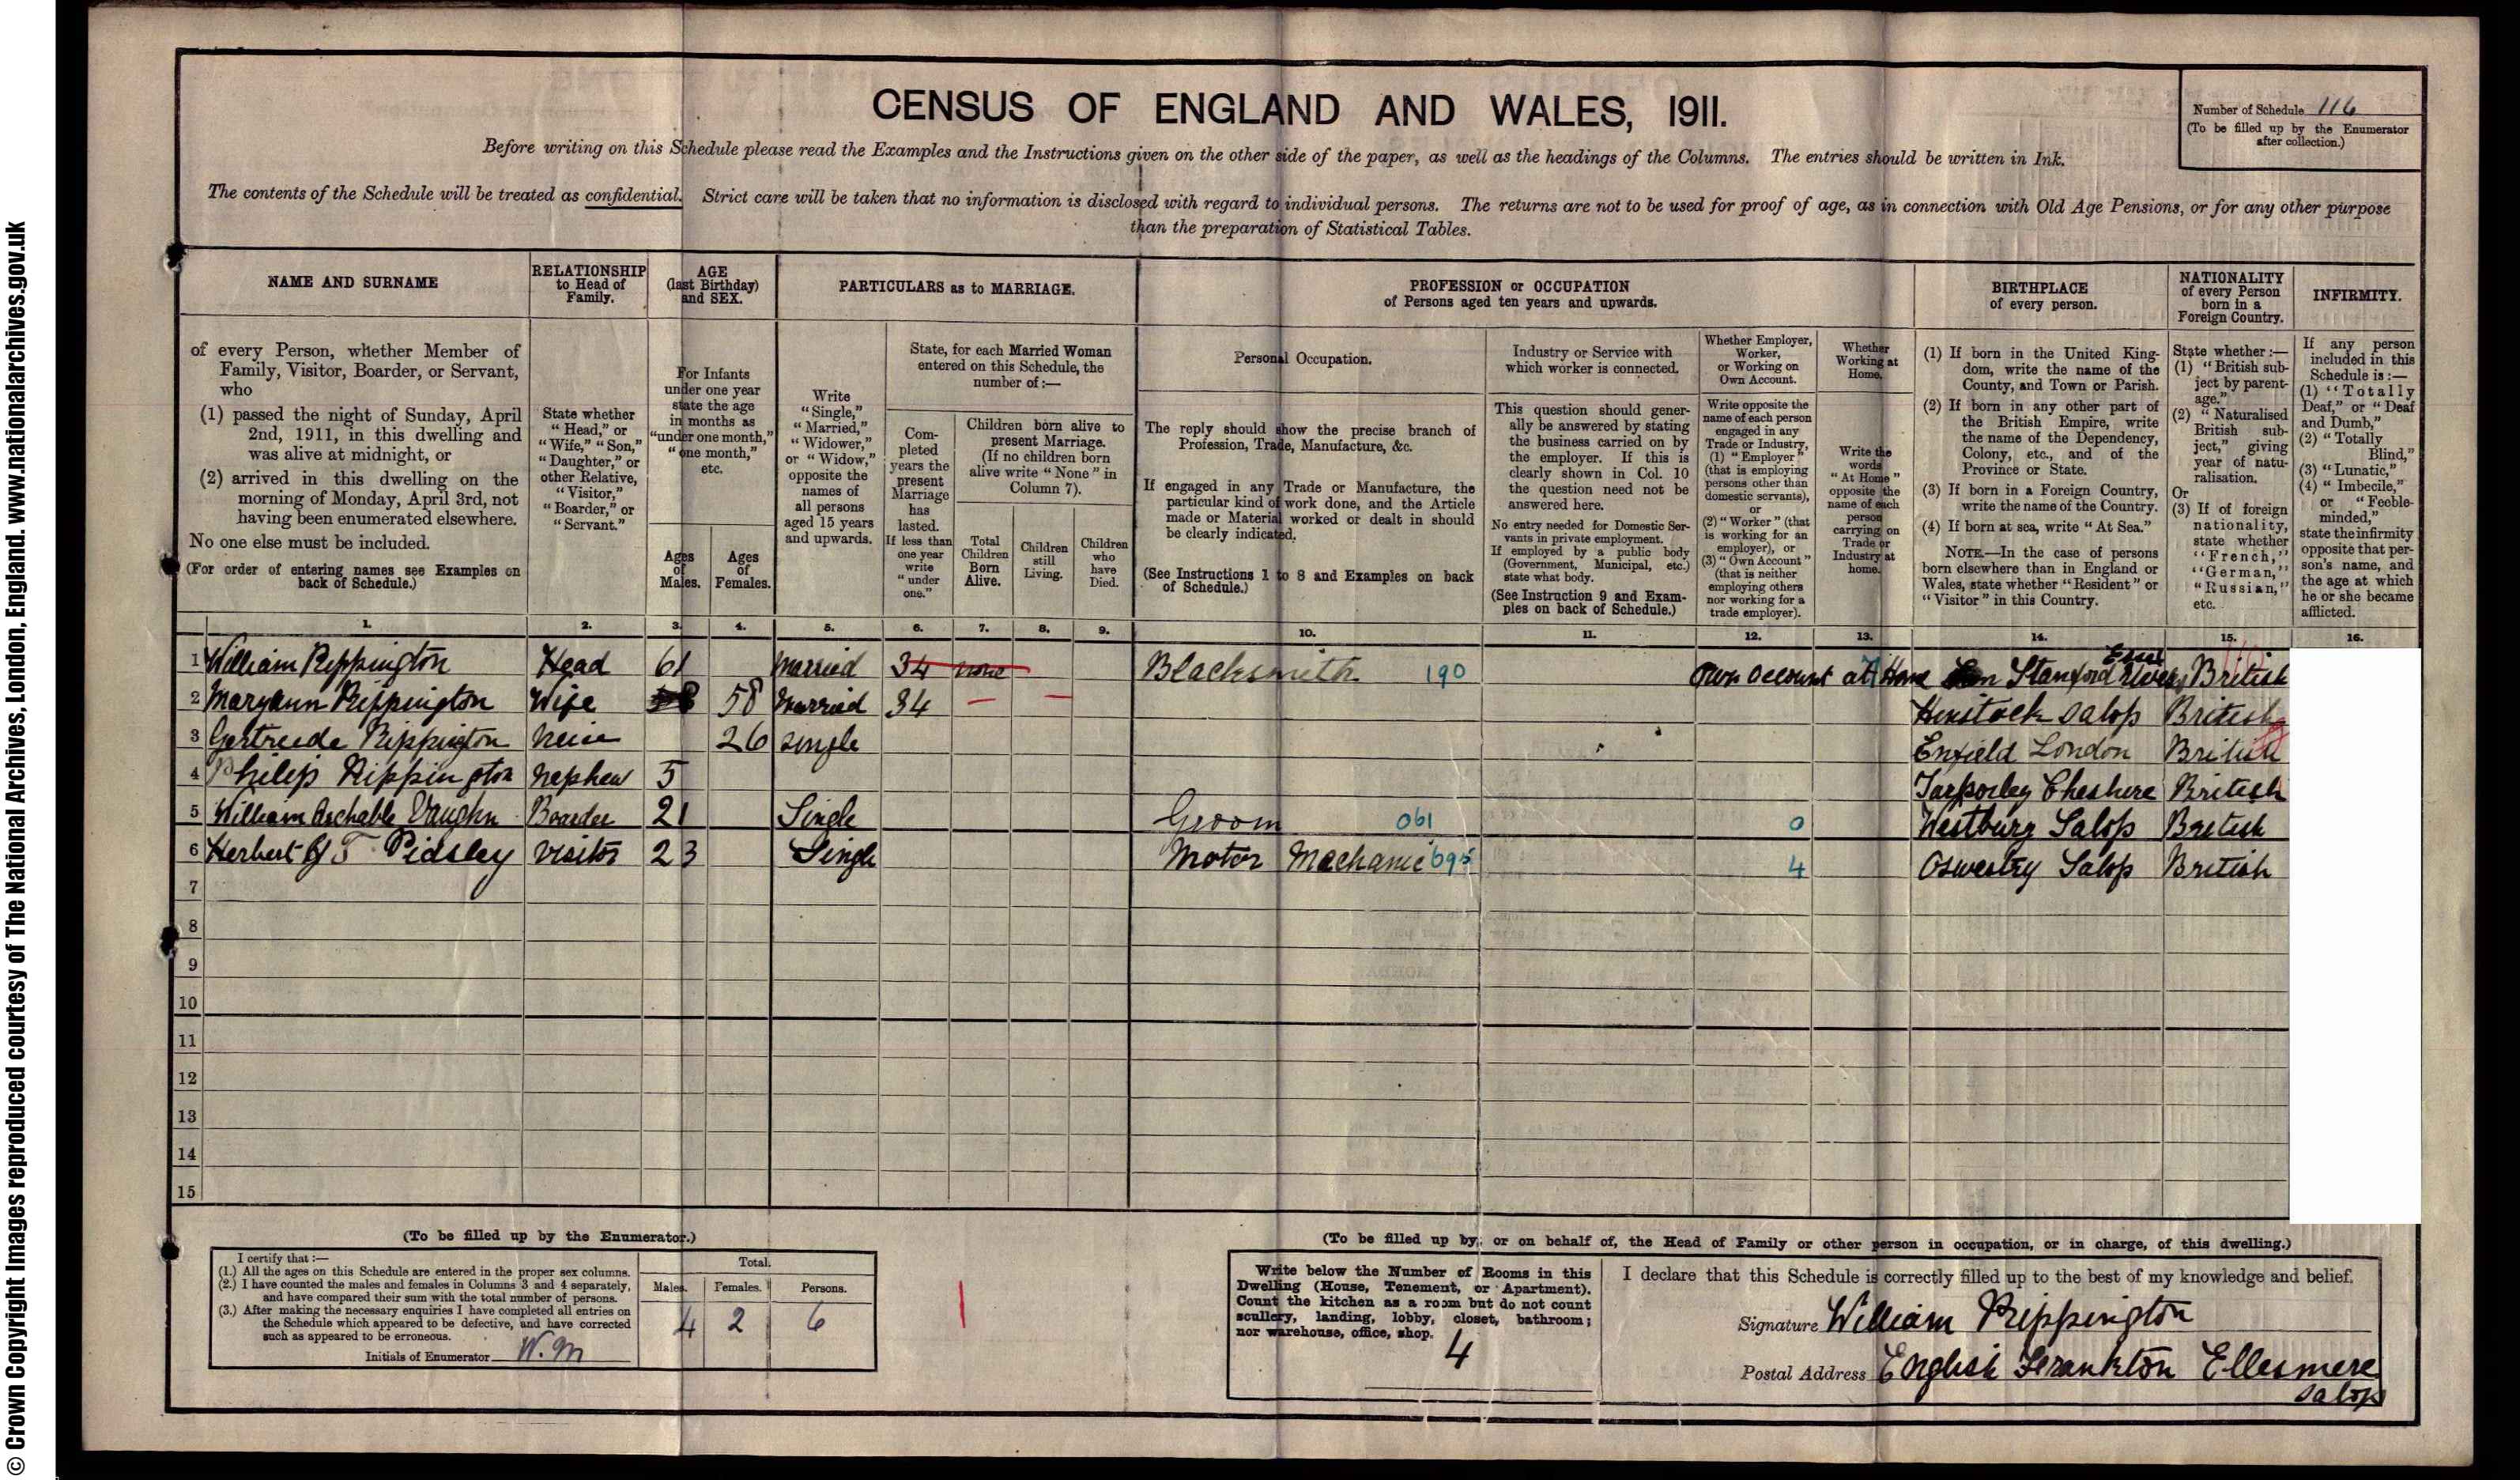 © Crown Copyright Images reproduced courtesy of The National Archives, London, England. www.nationalarchives.gov.uk
CENSUS OF ENGLAND AND WALES, 1911.
Number of Schedule 116
(To be filled up by the Enumerator
after collection.)
Before writing on this Schedule please read the Examples and the Instructions given on the other side of the paper, as well as the headings of the Columns. The entries should be written in Ink.
The contents of the Schedule will be treated as confidential. Strict care will be taken that no information is disclosed with regard to individual persons. The returns are not to be used for proof of age, as in connection with Old Age Pensions, or for any other purpose
than the preparation of Statistical Tables.
NAME AND SURNAME
of every Person, whether Member of
Family, Visitor, Boarder, or Servant,
who
(1) passed the night of Sunday, April
2nd, 1911, in this dwelling and
was alive at midnight, or
(2) arrived in this dwelling on the
morning of Monday, April 3rd, not
having been enumerated elsewhere.
No one else must be included.
(For order of entering names see Examples on
back of Schedule.)
RELATIONSHIP
to Head of
Family.
State whether
"Head," or
"Wife," "Son,"
"Daughter," or
other Relative,
"Visitor,"
"Boarder," or
"Servant."
AGE
(last Birthday)
and SEX.
For Infants
under one year
state the age
in months as
"under one month,"
"one month,"
etc.
Ages
of
Males.
Ages
of
Females.
PARTICULARS as to MARRIAGE.
Write
"Single,"
"Married,"
"Widower,"
or "Widow,"
opposite the
names of
all persons
aged 15 years
and upwards.
State, for each Married Woman
entered on this Schedule, the
number of:—
Com-
pleted
years the
present
Marriage
has
lasted.
If less than
one year
write
"under
one."
Children born alive to
present Marriage.
(If no children born
alive write "None" in
Column 7).
Total
Children
Born
Alive.
Children
still
Living.
Children
who
have
Died.
PROFESSION or OCCUPATION
of Persons aged ten years and upwards.
Personal Occupation.
The reply should show the precise branch of
Profession, Trade, Manufacture, &c.
If engaged in any Trade or Manufacture, the
particular kind of work done, and the Article
made or Material worked or dealt in should
be clearly indicated.
(See Instructions 1 to 8 and Examples on back
of Schedule.)
Industry or Service with
which worker is connected.
This question should gener-
ally be answered by stating
the business carried on by
the employer. If this is
clearly shown in Col. 10
the question need not be
answered here.
No entry needed for Domestic Ser-
vants in private employment.
If employed by a public body
(Government, Municipal, etc.)
state what body.
(See Instruction 9 and Exam-
ples on back of Schedule.)
Whether Employer,
Worker,
or Working on
Own Account.
Write opposite the
name of each person
engaged in any
Trade or Industry,
(1) "Employer"
(that is employing
persons other than
domestic servants),
or
(2) "Worker" (that
is working for an
employer), or
(3) "Own Account"
(that is neither
employing others
nor working for a
trade employer).
Whether
Working at
Home.
Write the
words
"At Home"
opposite the
name of each
person
carrying on
Trade or
Industry at
home.
BIRTHPLACE
of every person.
(1) If born in the United King-
dom, write the name of the
County, and Town or Parish.
(2) If born in any other part of
the British Empire, write
the name of the Dependency,
Colony, etc., and of the
Province or State.
(3) If born in a Foreign Country,
write the name of the Country.
(4) If born at sea, write "At Sea."
NOTE.—In the case of persons
born elsewhere than in England or
Wales, state whether "Resident" or
"Visitor" in this Country.
NATIONALITY
of every Person
born in a
Foreign Country.
State whether:—
(1) "British sub-
ject by parent-
age."
(2) "Naturalised
British sub-
ject," giving
year of natu-
ralisation.
Or
(3) If of foreign
nationality,
state whether
"French,"
"German,"
"Russian,"
etc.
INFIRMITY.
If any person
included in this
Schedule is:—
(1) "Totally
Deaf," or "Deaf
and Dumb,"
(2) "Totally
Blind,"
(3) "Lunatic,"
(4) "Imbecile,"
or "Feeble-
minded,"
state the infirmity
opposite that per-
son's name, and
the age at which
he or she became
afflicted.
1. 2. 3. 4. 5. 6. 7. 8. 9. 10. 11. 12. 13. 14. 15. 16.
1 William Rippington Head 61 Married 34 none Blacksmith 190 Own account at Home Stanford Rivers Essex British
2 Maryann Rippington Wife 58 Married 34 — — Hinstock Salop British
3 Gertrude Rippington Neice 26 Single Enfield London British
4 Philip Rippington Nephew 5 Tarporley Cheshire British
5 William Vaughn Boarder 21 Single Groom 061 0 Westbury Salop British
6 Herbert T Pidsley Visitor 23 Single Motor Mechanic 695 4 Oswestry Salop British
7
8
9
10
11
12
13
14
15
(To be filled up by the Enumerator.)
I certify that:—
(1.) All the ages on this Schedule are entered in the proper sex columns.
(2.) I have counted the males and females in Columns 3 and 4 separately,
and have compared their sum with the total number of persons.
(3.) After making the necessary enquiries I have completed all entries on
the Schedule which appeared to be defective, and have corrected
such as appeared to be erroneous.
Initials of Enumerator W.M
Total.
Males. Females. Persons.
4 2 6
(To be filled up by, or on behalf of, the Head of Family or other person in occupation, or in charge, of this dwelling.)
Write below the Number of Rooms in this
Dwelling (House, Tenement, or Apartment).
Count the kitchen as a room but do not count
scullery, landing, lobby, closet, bathroom;
nor warehouse, office, shop.
4
I declare that this Schedule is correctly filled up to the best of my knowledge and belief.
Signature William Rippington
Postal Address English Frankton Ellesmere
Salop